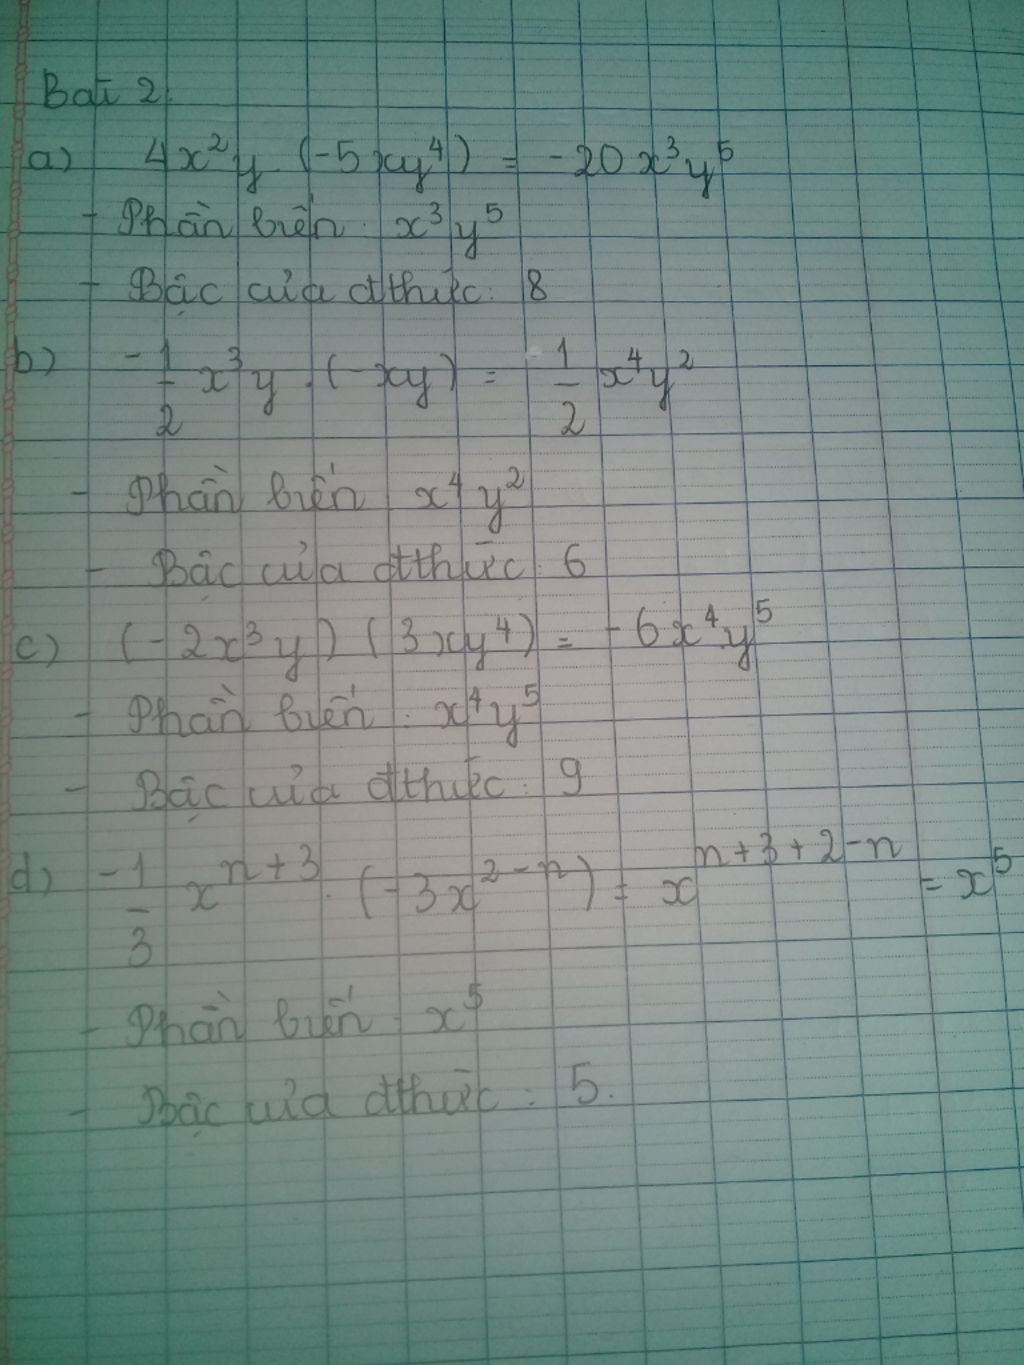 Bài 2
a) 4x²y (-5xy⁴) = -20x³y⁵
- Phần biến : x³y⁵
- Bậc của đthức : 8
b) -1/2 x³y . (-xy) = 1/2 x⁴y²
- Phần biến x⁴y²
- Bậc của đthức : 6
c) (-2x³y) (3xy⁴) = -6x⁴y⁵
- Phần biến : x⁴y⁵
- Bậc của đthức : 9
d) -1/3 xⁿ⁺³ . (-3x²⁻ⁿ) = xⁿ⁺³⁺²⁻ⁿ = x⁵
- Phần biến : x⁵
- Bậc của đthức : 5.